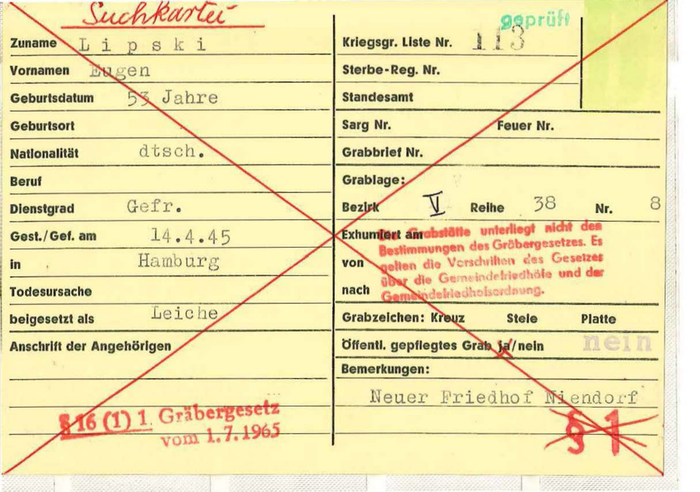 Suchkartei
geprüft
Zuname Lipski
Vornamen Eugen
Geburtsdatum 53 Jahre
Geburtsort
Nationalität dtsch.
Beruf
Dienstgrad Gefr.
Gest./Gef. am 14.4.45
in Hamburg
Todesursache
beigesetzt als Leiche
Anschrift der Angehörigen
§ 16 (1) 1. Gräbergesetz
vom 1.7.1965
Kriegsgr. Liste Nr. 113
Sterbe-Reg. Nr.
Standesamt
Sarg Nr. Feuer Nr.
Grabbrief Nr.
Grablage:
Bezirk V Reihe 38 Nr. 8
Exhumiert am
von
nach
Die Grabstätte unterliegt nicht den
Bestimmungen des Gräbergesetzes. Es
gelten die Vorschriften des Gesetzes
über die Gemeindefriedhöfe und der
Gemeindefriedhofsordnung.
Grabzeichen: Kreuz Stele Platte
Öffentl. gepflegtes Grab ja/nein nein
Bemerkungen:
Neuer Friedhof Niendorf
§ 1